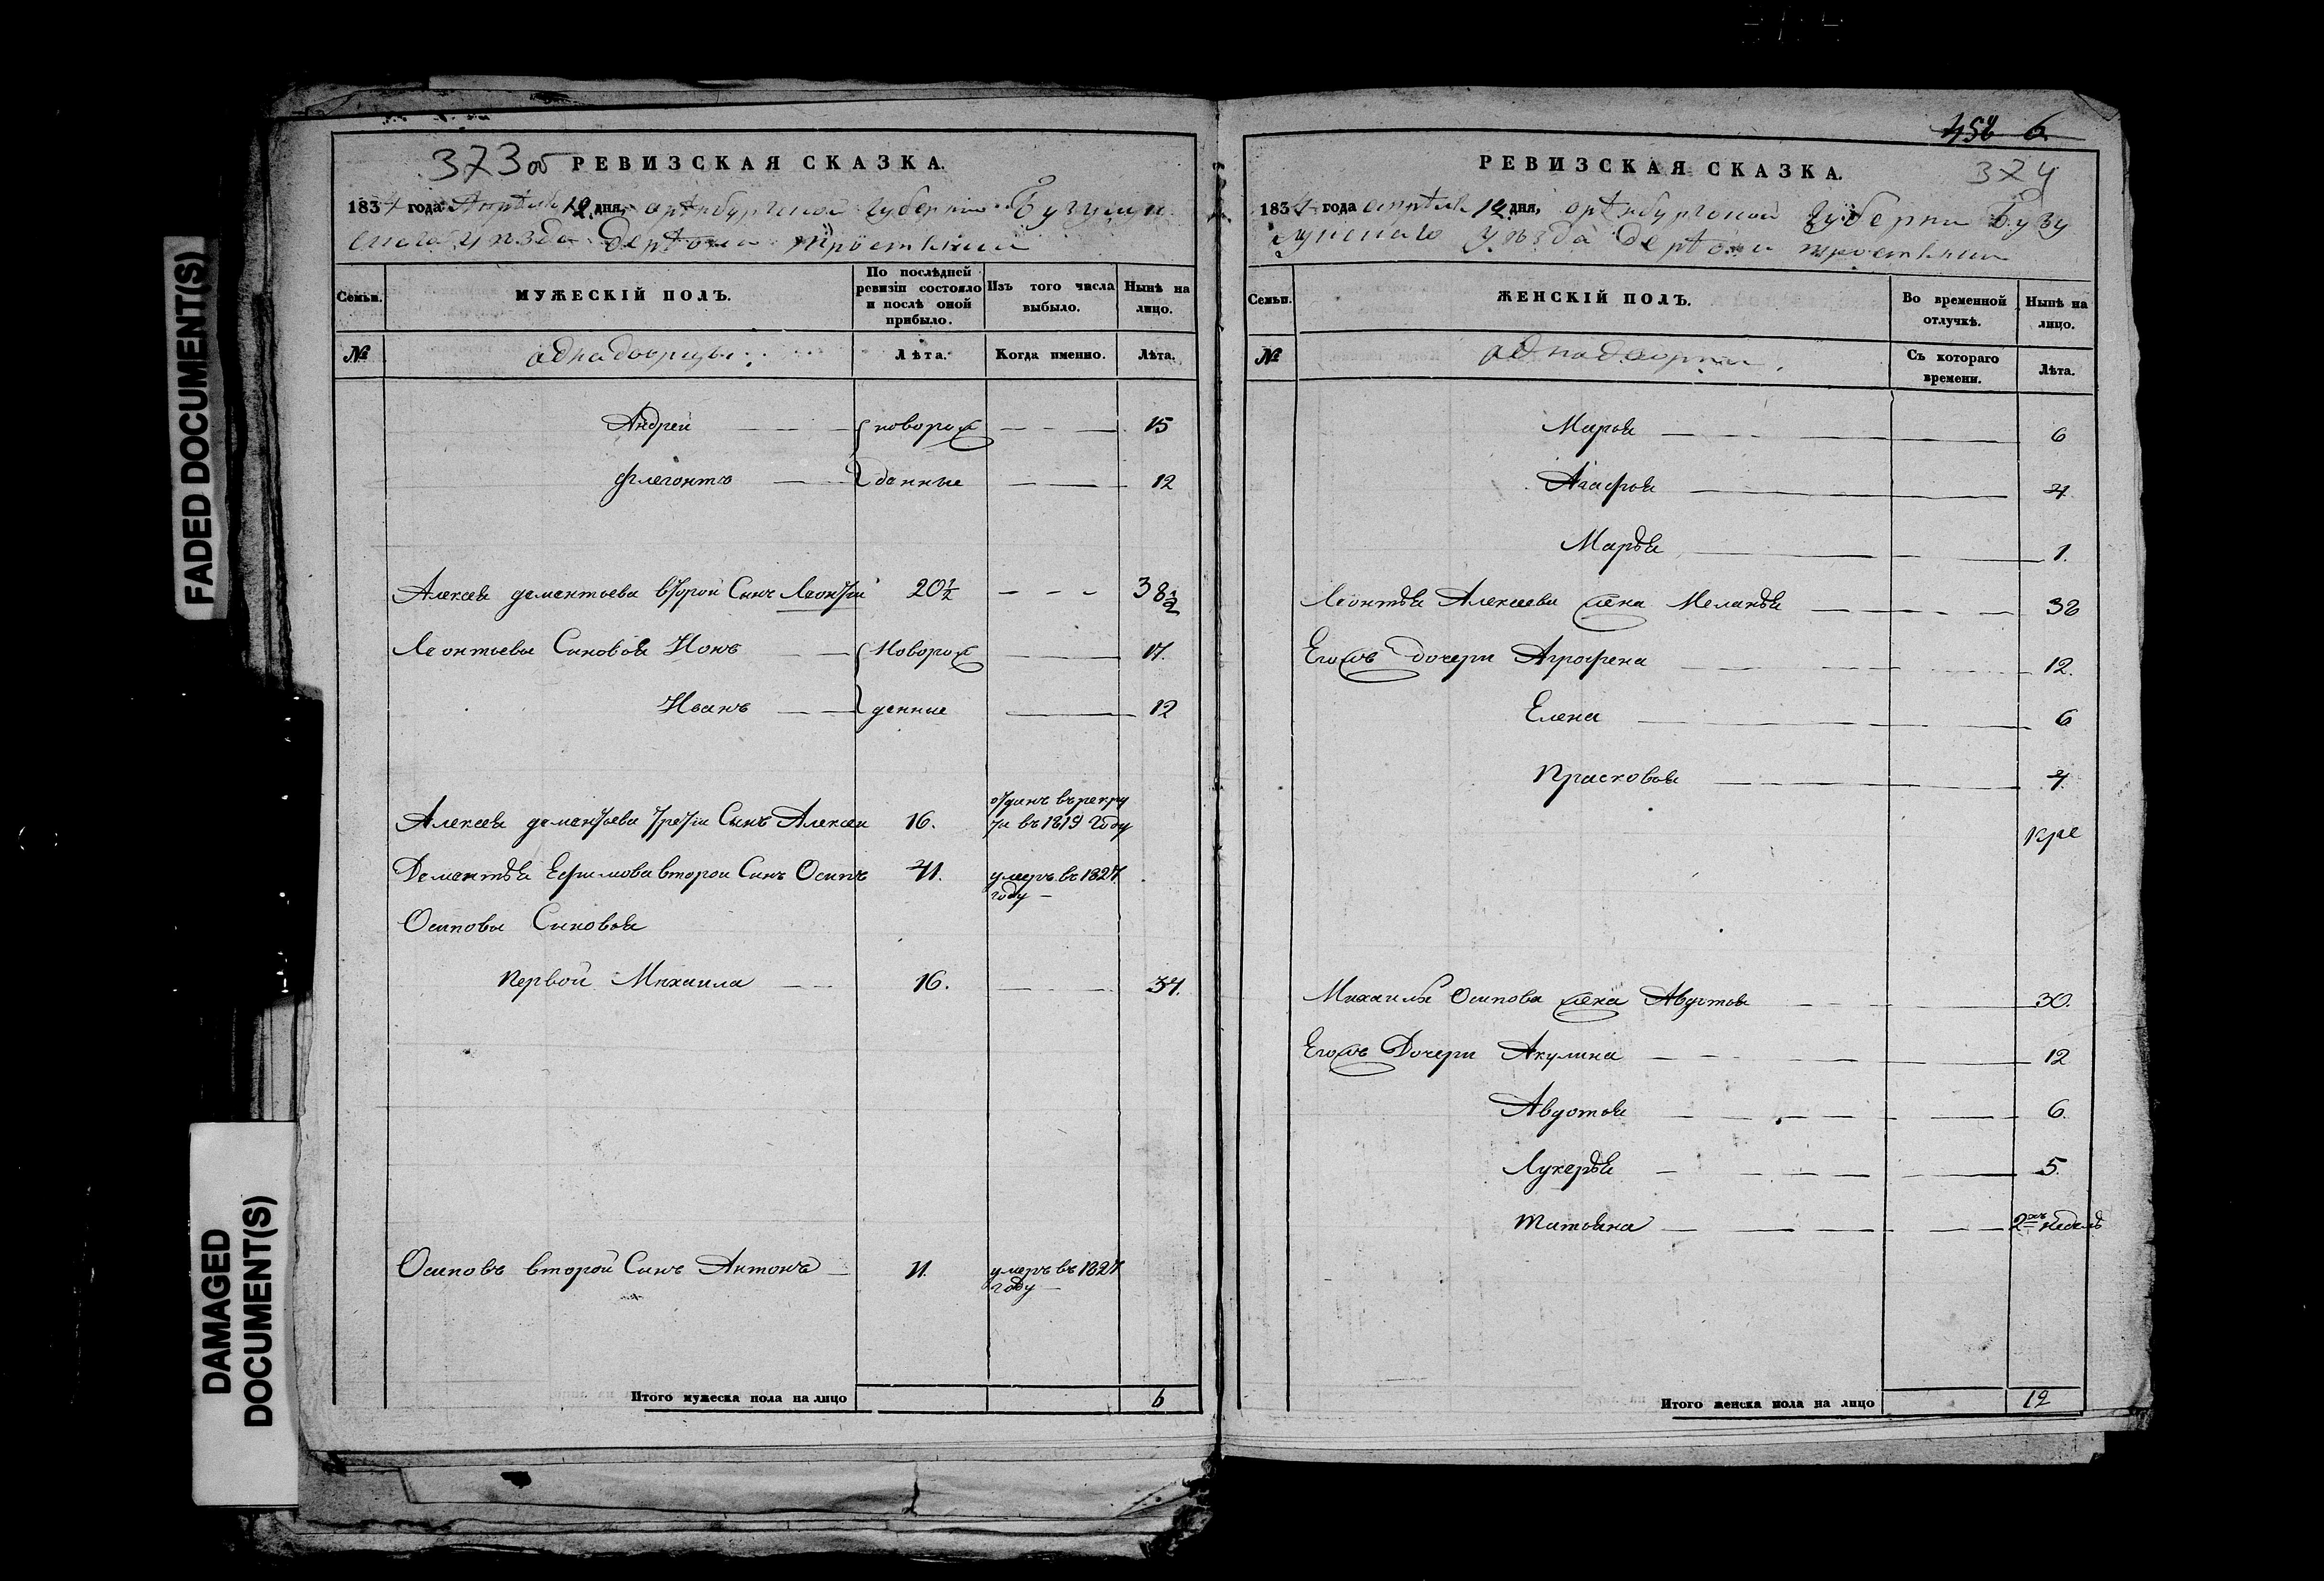 FADED DOCUMENT(S)
DAMAGED
DOCUMENT(S)
373об РЕВИЗСКАЯ СКАЗКА.
1834 года Апреля 12 дня, оренбургской губернии Бузулук
скаго уезда деревни тростянки
Семьи. МУЖЕСКІЙ ПОЛЪ. По послѣдней ревизіи состояло и послѣ оной прибыло. Изъ того числа выбыло. Нынѣ на лицо.
№ аднадворцы. Лѣта. Когда именно. Лѣта.
Андреи новорож 15
Флегонтъ данные 12
Алексея дементьева второи Сынъ Леонтеи 20½ 38½
Леонтьевы Сыновья Ионъ Новорож 17.
Иванъ денные 12
Алексея дементьева третіи Сынъ Алексеи 16. отданъ въ рекру
ты въ 1819 году
Дементья Ефимова второи Сынъ Осипъ 41. умеръ въ 1827
году
Осиповы Сыновья
первой Михаила 16. 34.
Осиповъ второй Сынъ Антонъ 11. умеръ въ 1827
году
Итого мужеска пола на лицо 6
456 6
РЕВИЗСКАЯ СКАЗКА. 374
1834 года апреля 12 дня, оренбургской губерни Бузу
лукскаго уезда деревни тростянки
Семьи. ЖЕНСКІЙ ПОЛЪ. Во временной отлучкѣ. Нынѣ на лицо.
№ аднадворки. Съ котораго времени. Лѣта.
Марья 6
Агафья 4
Марья 1.
Леонтья Алексеева жена Меланья 38
Егожъ дочери Агрофена 12.
Елена 6
Прасковья 4
Михаилы Осипова жена Авдотья 30.
Егожъ Дочери Акулина 12
Авдотья 6.
Лукерья 5.
Татьяна 2хъ недель
Итого женска пола на лицо 12